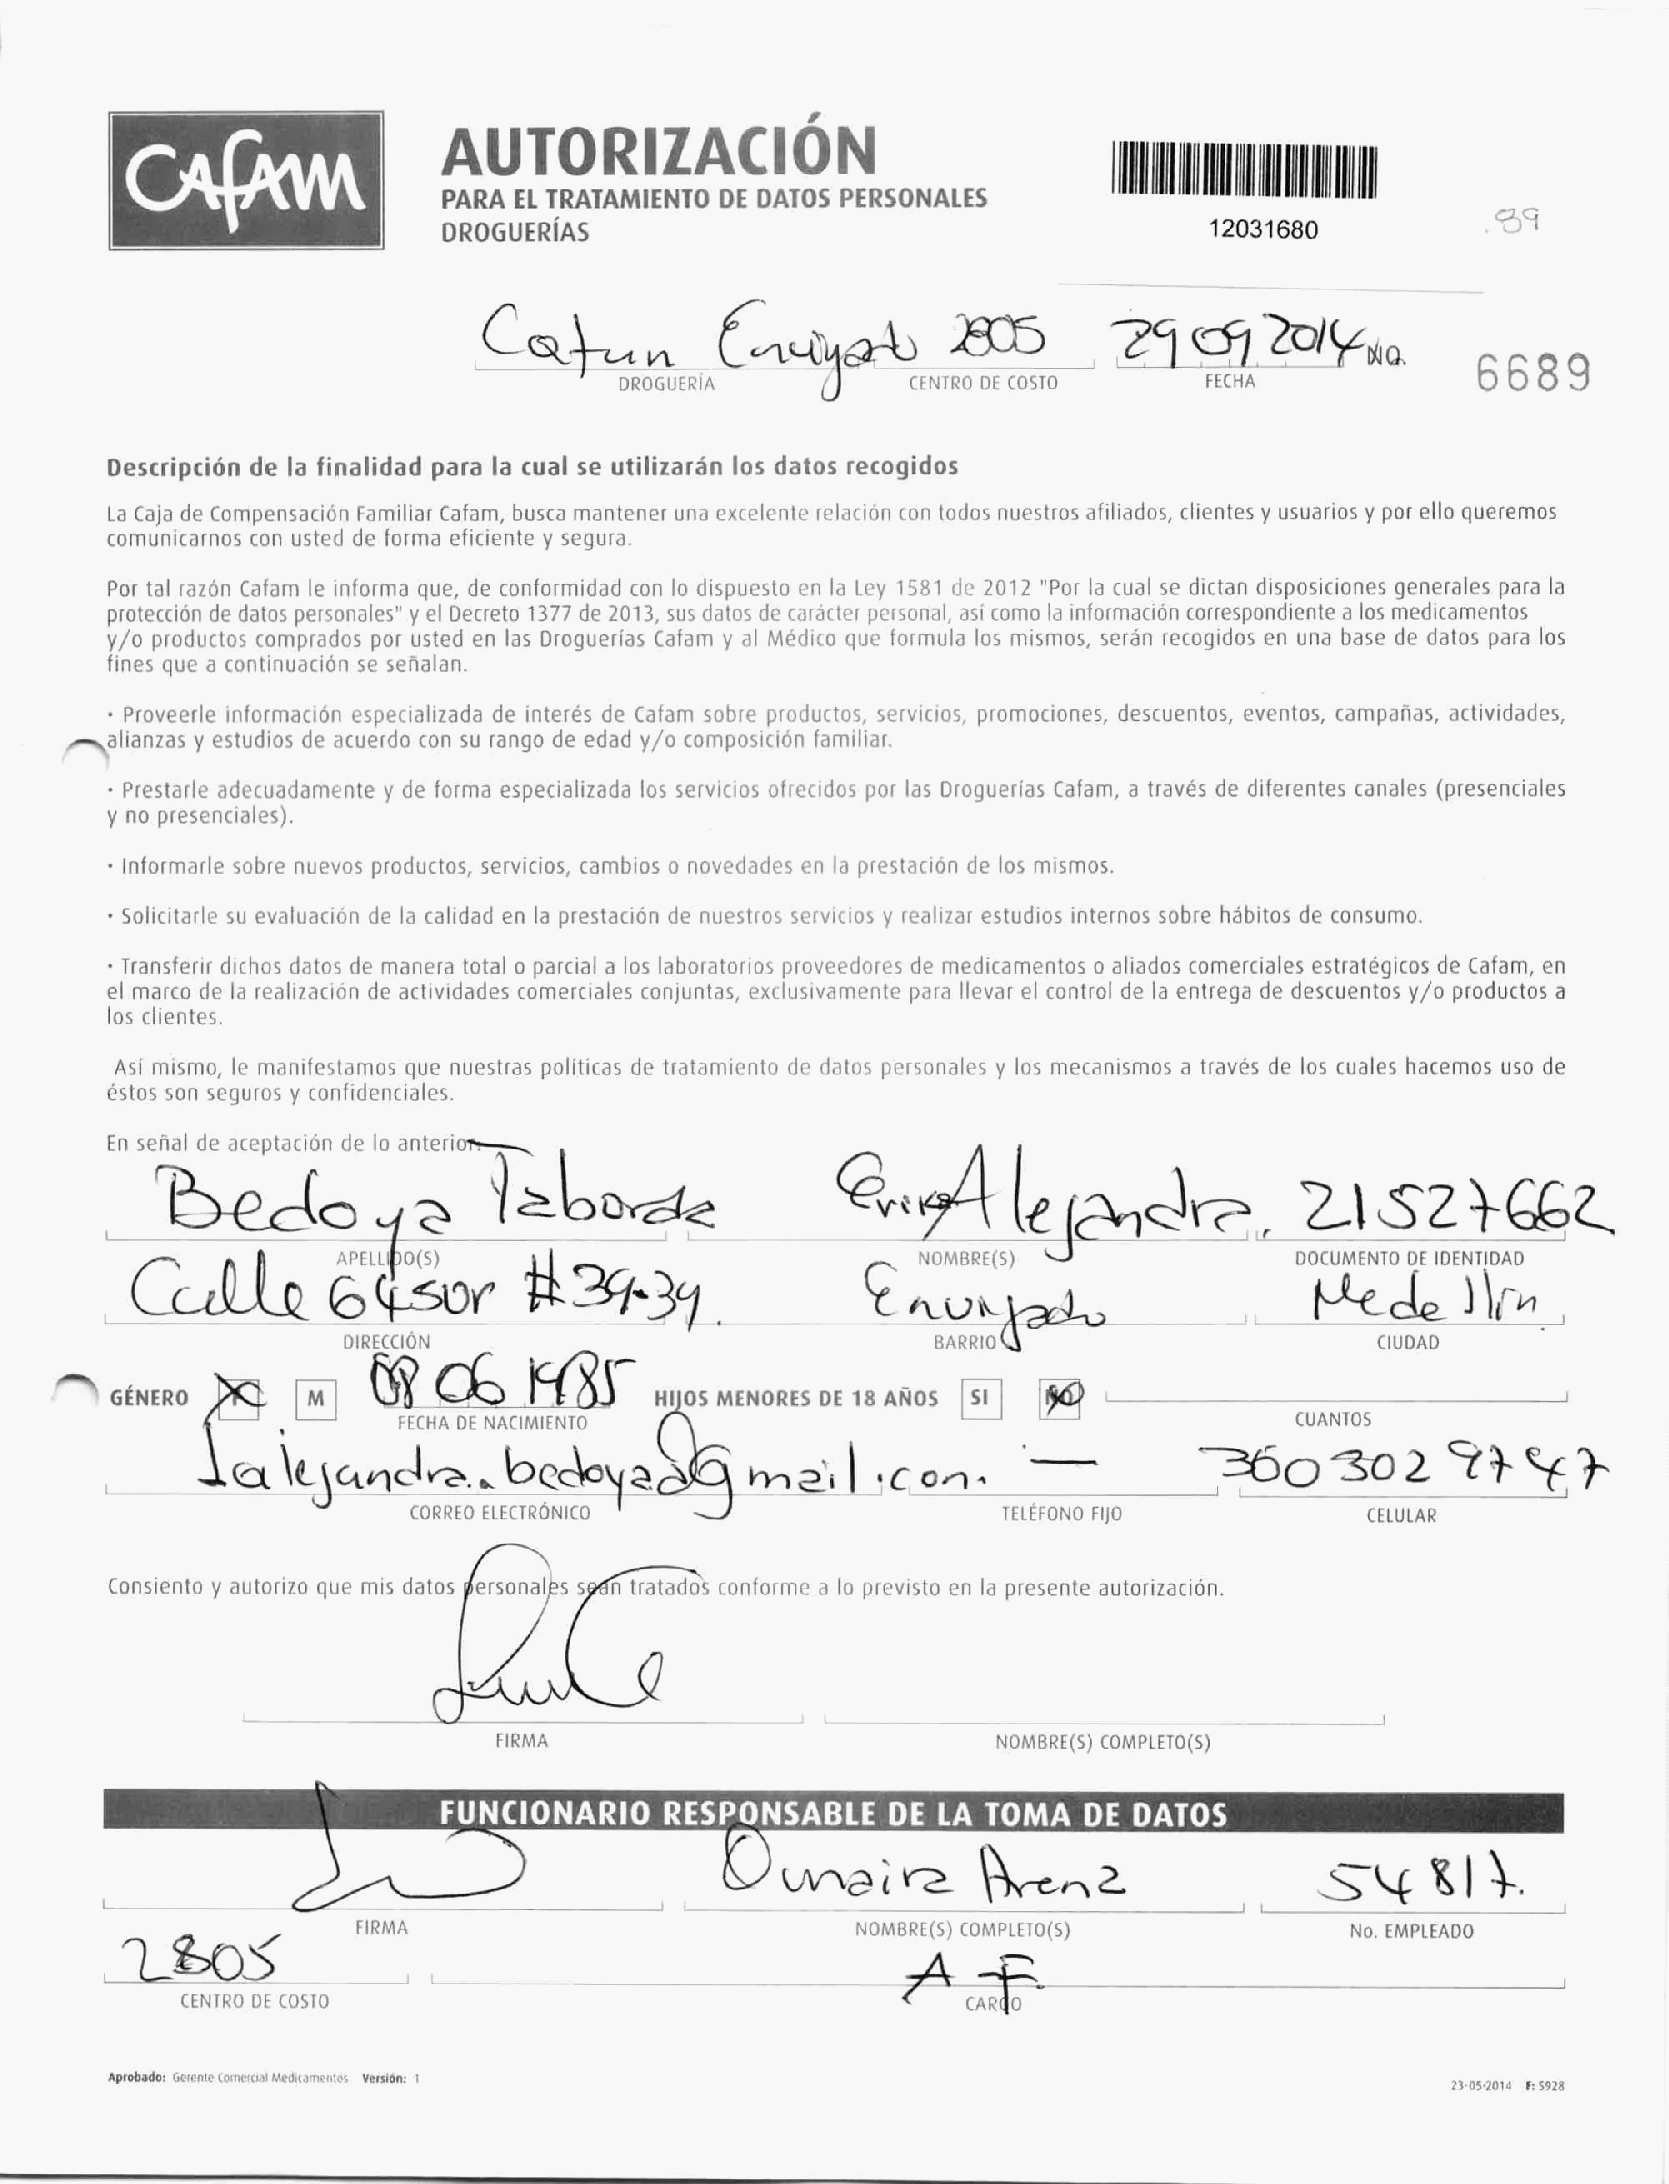 Cafam
AUTORIZACIÓN
PARA EL TRATAMIENTO DE DATOS PERSONALES
DROGUERÍAS
12031680
.89
2805 29 09 2014 No. 6689
DROGUERÍA CENTRO DE COSTO FECHA
Descripción de la finalidad para la cual se utilizarán los datos recogidos
La Caja de Compensación Familiar Cafam, busca mantener una excelente relación con todos nuestros afiliados, clientes y usuarios y por ello queremos
comunicarnos con usted de forma eficiente y segura.
Por tal razón Cafam le informa que, de conformidad con lo dispuesto en la Ley 1581 de 2012 "Por la cual se dictan disposiciones generales para la
protección de datos personales" y el Decreto 1377 de 2013, sus datos de carácter personal, así como la información correspondiente a los medicamentos
y/o productos comprados por usted en las Droguerías Cafam y al Médico que formula los mismos, serán recogidos en una base de datos para los
fines que a continuación se señalan.
· Proveerle información especializada de interés de Cafam sobre productos, servicios, promociones, descuentos, eventos, campañas, actividades,
alianzas y estudios de acuerdo con su rango de edad y/o composición familiar.
· Prestarle adecuadamente y de forma especializada los servicios ofrecidos por las Droguerías Cafam, a través de diferentes canales (presenciales
y no presenciales).
· Informarle sobre nuevos productos, servicios, cambios o novedades en la prestación de los mismos.
· Solicitarle su evaluación de la calidad en la prestación de nuestros servicios y realizar estudios internos sobre hábitos de consumo.
· Transferir dichos datos de manera total o parcial a los laboratorios proveedores de medicamentos o aliados comerciales estratégicos de Cafam, en
el marco de la realización de actividades comerciales conjuntas, exclusivamente para llevar el control de la entrega de descuentos y/o productos a
los clientes.
Así mismo, le manifestamos que nuestras políticas de tratamiento de datos personales y los mecanismos a través de los cuales hacemos uso de
éstos son seguros y confidenciales.
En señal de aceptación de lo anterior.
Bedoya Taborda Erika Alejandra. 21527662
APELLIDO(S) NOMBRE(S) DOCUMENTO DE IDENTIDAD
Calle 64 sur # 39-39. Envigado Medellin
DIRECCIÓN BARRIO CIUDAD
GÉNERO M 08 06 1985 HIJOS MENORES DE 18 AÑOS SI NO
FECHA DE NACIMIENTO CUANTOS
— 300 302 9747
CORREO ELECTRÓNICO TELÉFONO FIJO CELULAR
Consiento y autorizo que mis datos personales sean tratados conforme a lo previsto en la presente autorización.
FIRMA NOMBRE(S) COMPLETO(S)
FUNCIONARIO RESPONSABLE DE LA TOMA DE DATOS
54817.
FIRMA NOMBRE(S) COMPLETO(S) No. EMPLEADO
2805 A F.
CENTRO DE COSTO CARGO
Aprobado: Gerente Comercial Medicamentos Versión: 1
23-05-2014 F: 5928